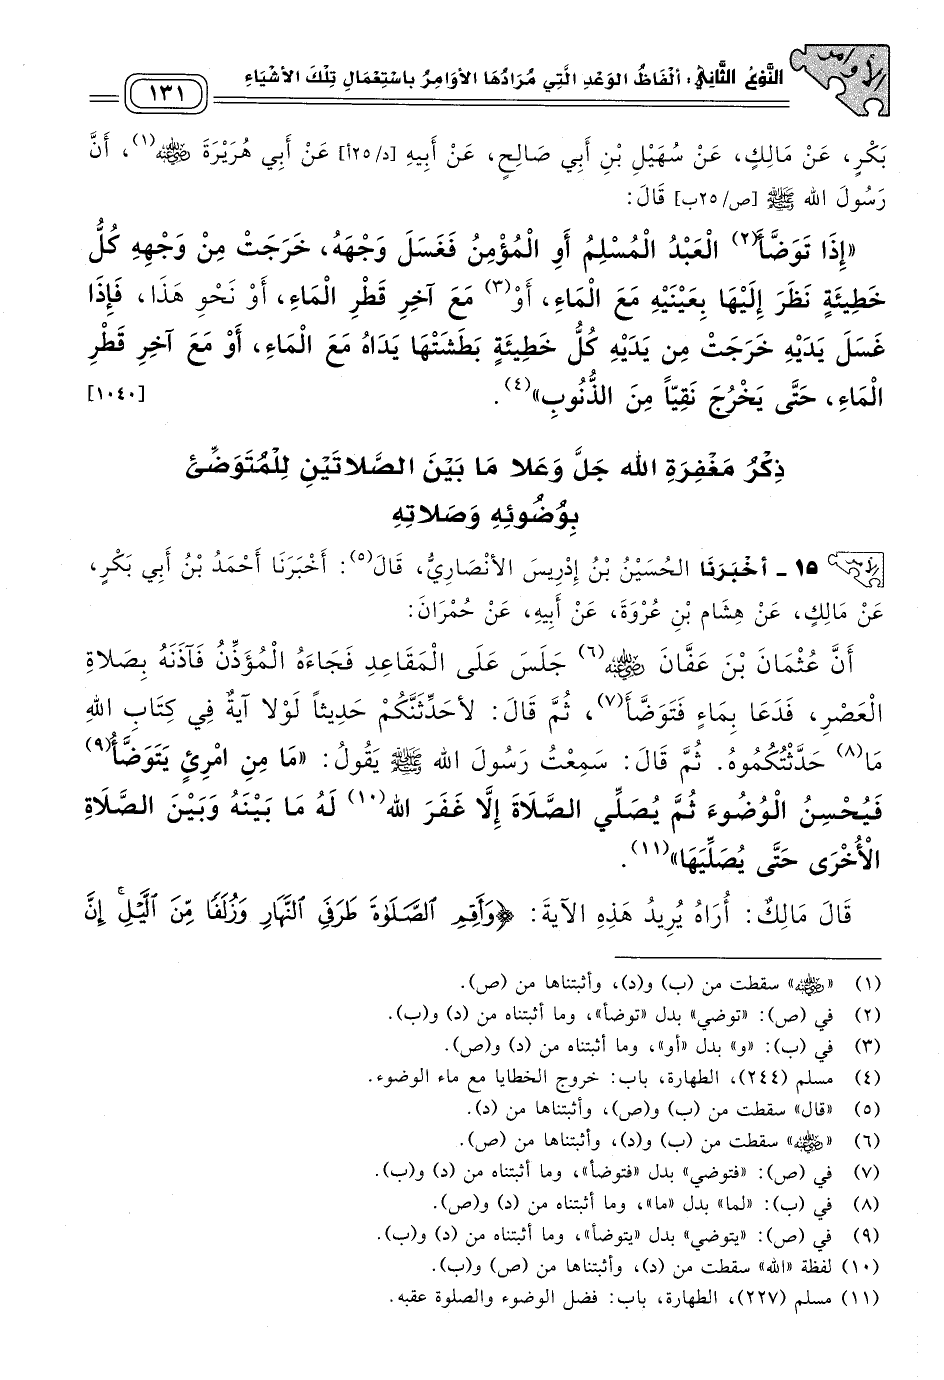 الأوامر
النَّوْعُ الثَّانِي: أَلْفَاظُ الوَعْدِ الَّتِي مُرَادُهَا الأَوَامِرُ بِاسْتِعْمَالِ تِلْكَ الأَشْيَاءِ
١٣١
بَكْرٍ، عَنْ مَالِكٍ، عَنْ سُهَيْلِ بْنِ أَبِي صَالِحٍ، عَنْ أَبِيهِ [د/٢٥أ] عَنْ أَبِي هُرَيْرَةَ رضي الله عنه(١)، أَنَّ
رَسُولَ الله ﷺ [ص/٢٥ب] قَالَ:
«إِذَا تَوَضَّأَ(٢) الْعَبْدُ الْمُسْلِمُ أَوِ الْمُؤْمِنُ فَغَسَلَ وَجْهَهُ، خَرَجَتْ مِنْ وَجْهِهِ كُلُّ
خَطِيئَةٍ نَظَرَ إِلَيْهَا بِعَيْنَيْهِ مَعَ الْمَاءِ، أَوْ(٣) مَعَ آخِرِ قَطْرِ الْمَاءِ، أَوْ نَحْوِ هَذَا، فَإِذَا
غَسَلَ يَدَيْهِ خَرَجَتْ مِن يَدَيْهِ كُلُّ خَطِيئَةٍ بَطَشَتْهَا يَدَاهُ مَعَ الْمَاءِ، أَوْ مَعَ آخِرِ قَطْرِ
الْمَاءِ، حَتَّى يَخْرُجَ نَقِيّاً مِنَ الذُّنُوبِ»(٤). [١٠٤٠]
ذِكْرُ مَغْفِرَةِ الله جَلَّ وَعَلا مَا بَيْنَ الصَّلاتَيْنِ لِلْمُتَوَضِّئِ
بِوُضُوئِهِ وَصَلاتِهِ
الأوامر
١٥ - أَخْبَرَنَا الحُسَيْنُ بْنُ إِدْرِيسَ الأَنْصَارِيُّ، قَالَ(٥): أَخْبَرَنَا أَحْمَدُ بْنُ أَبِي بَكْرٍ،
عَنْ مَالِكٍ، عَنْ هِشَام بْنِ عُرْوَةَ، عَنْ أَبِيهِ، عَنْ حُمْرَانَ:
أَنَّ عُثْمَانَ بْنَ عَفَّانَ رضي الله عنه(٦) جَلَسَ عَلَى الْمَقَاعِدِ فَجَاءَهُ الْمُؤَذِّنُ فَآذَنَهُ بِصَلاةِ
الْعَصْرِ، فَدَعَا بِمَاءٍ فَتَوَضَّأَ(٧)، ثُمَّ قَالَ: لأُحَدِّثَنَّكُمْ حَدِيثاً لَوْلا آيةٌ فِي كِتَابِ اللهِ
مَا(٨) حَدَّثْتُكُمُوهُ. ثُمَّ قَالَ: سَمِعْتُ رَسُولَ الله ﷺ يَقُولُ: «مَا مِنِ امْرِئٍ يَتَوَضَّأُ(٩)
فَيُحْسِنُ الْوُضُوءَ ثُمَّ يُصَلِّي الصَّلَاةَ إِلَّا غَفَرَ الله(١٠) لَهُ مَا بَيْنَهُ وَبَيْنَ الصَّلَاةِ
الْأُخْرَى حَتَّى يُصَلِّيَهَا»(١١).
قَالَ مَالِكٌ: أُرَاهُ يُرِيدُ هَذِهِ الآيةَ: ﴿وَأَقِمِ الصَّلَوٰةَ طَرَفَيِ النَّهَارِ وَزُلَفًا مِّنَ الَّيْلِ ۚ إِنَّ
(١) «رضي الله عنه» سقطت من (ب) و(د)، وأثبتناها من (ص).
(٢) في (ص): «توضي» بدل «توضأ»، وما أثبتناه من (د) و(ب).
(٣) في (ب): «و» بدل «أو»، وما أثبتناه من (د) و(ص).
(٤) مسلم (٢٤٤)، الطهارة، باب: خروج الخطايا مع ماء الوضوء.
(٥) «قال» سقطت من (ب) و(ص)، وأثبتناها من (د).
(٦) «رضي الله عنه» سقطت من (ب) و(د)، وأثبتناها من (ص).
(٧) في (ص): «فتوضي» بدل «فتوضأ»، وما أثبتناه من (د) و(ب).
(٨) في (ب): «لما» بدل «ما»، وما أثبتناه من (د) و(ص).
(٩) في (ص): «يتوضي» بدل «يتوضأ»، وما أثبتناه من (د) و(ب).
(١٠) لفظة «الله» سقطت من (د)، وأثبتناها من (ص) و(ب).
(١١) مسلم (٢٢٧)، الطهارة، باب: فضل الوضوء والصلوة عقبه.